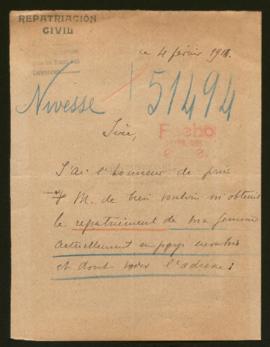 REPATRIACIÓN
CIVIL
ce 4 février 1918.
Nivesse
51494
Sire,
J'ai l'honneur de prier
V. M. de bien vouloir m'obtenir
le repatriement de ma femme
actuellement en pays envahis
et dont voici l'adresse :